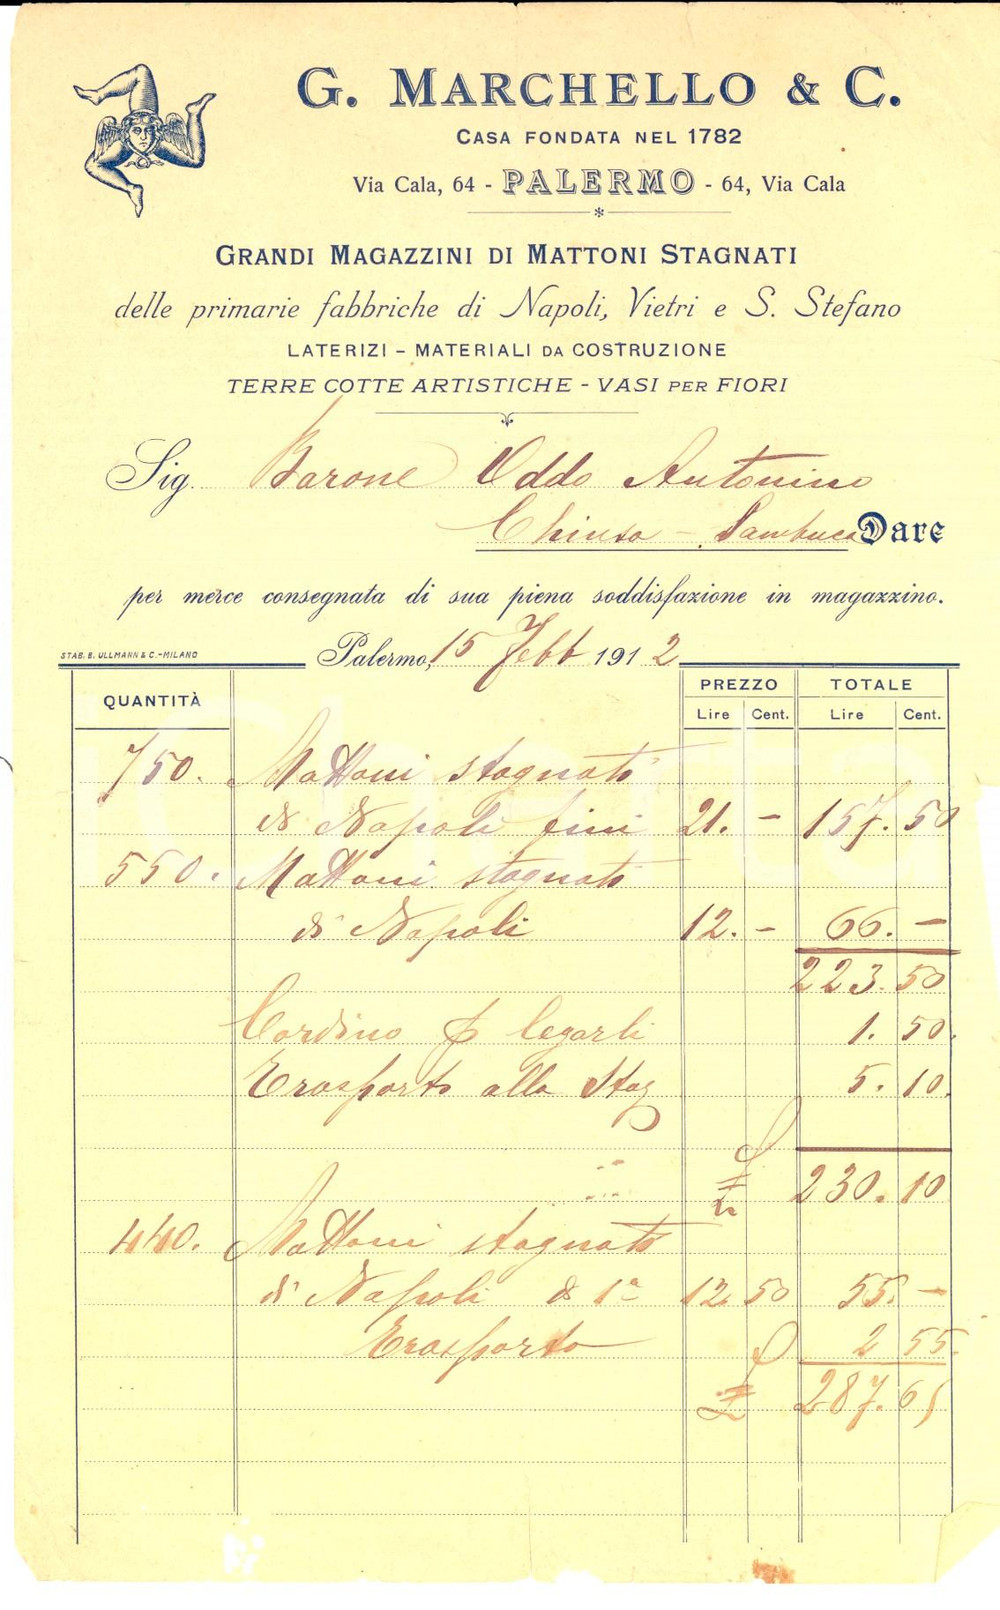 G. MARCHELLO & C.
CASA FONDATA NEL 1782
Via Cala, 64 - PALERMO - 64, Via Cala
GRANDI MAGAZZINI DI MATTONI STAGNATI
delle primarie fabbriche di Napoli, Vietri e S. Stefano
LATERIZI – MATERIALI DA COSTRUZIONE
TERRE COTTE ARTISTICHE - VASI PER FIORI
Sig. Barone Oddo Antonino
Chiusa - Sambuca Dare
per merce consegnata di sua piena soddisfazione in magazzino.
STAB. B. ULLMANN & C.-MILANO
Palermo, 15 Febb 1912
QUANTITÀ PREZZO TOTALE
Lire Cent. Lire Cent.
750. Mattoni stagnati
di Napoli fini 21. - 157. 50
550. Mattoni stagnati
di Napoli 12. - 66. -
223. 50
Cordino p legarli 1. 50
Trasporto alla Staz 5. 10
£ 230. 10
440. Mattoni stagnati
di Napoli di 1a 12. 50 55. -
Trasporto 2 55.
£ 287. 65